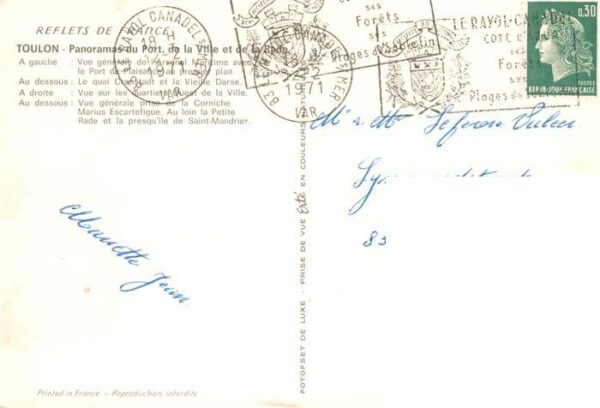 REFLETS DE FRANCE
TOULON - Panoramas du Port, de la Ville et de la Rade.
A gauche : Vue générale de l'Arsenal Maritime avec
le Port de Plaisance au premier plan.
Au dessous : Le quai Cronstadt et la Vieille Darse.
A droite : Vue sur les quartiers Ouest de la Ville.
Au dessous : Vue générale prise de la Corniche
Marius Escartefigue. Au loin la Petite
Rade et la presqu'île de Saint-Mandrier.
RAYOL CANADEL S MER
18 H
1971
VAR
83 LE RAYOL CANADEL S MER
18 H
1971
VAR
Forêts
ses
Plages de
LE RAYOL-CANADEL
COTE D'AZUR
ses
Forêts
ses
Plages de
0,30
POSTES
REPUBLIQUE FRANÇAISE
Mr & Mme
83
Mariette Jean
FOTOFSET DE LUXE - PRISE DE VUE Erté EN COULEURS
Printed in France - Reproduction interdite